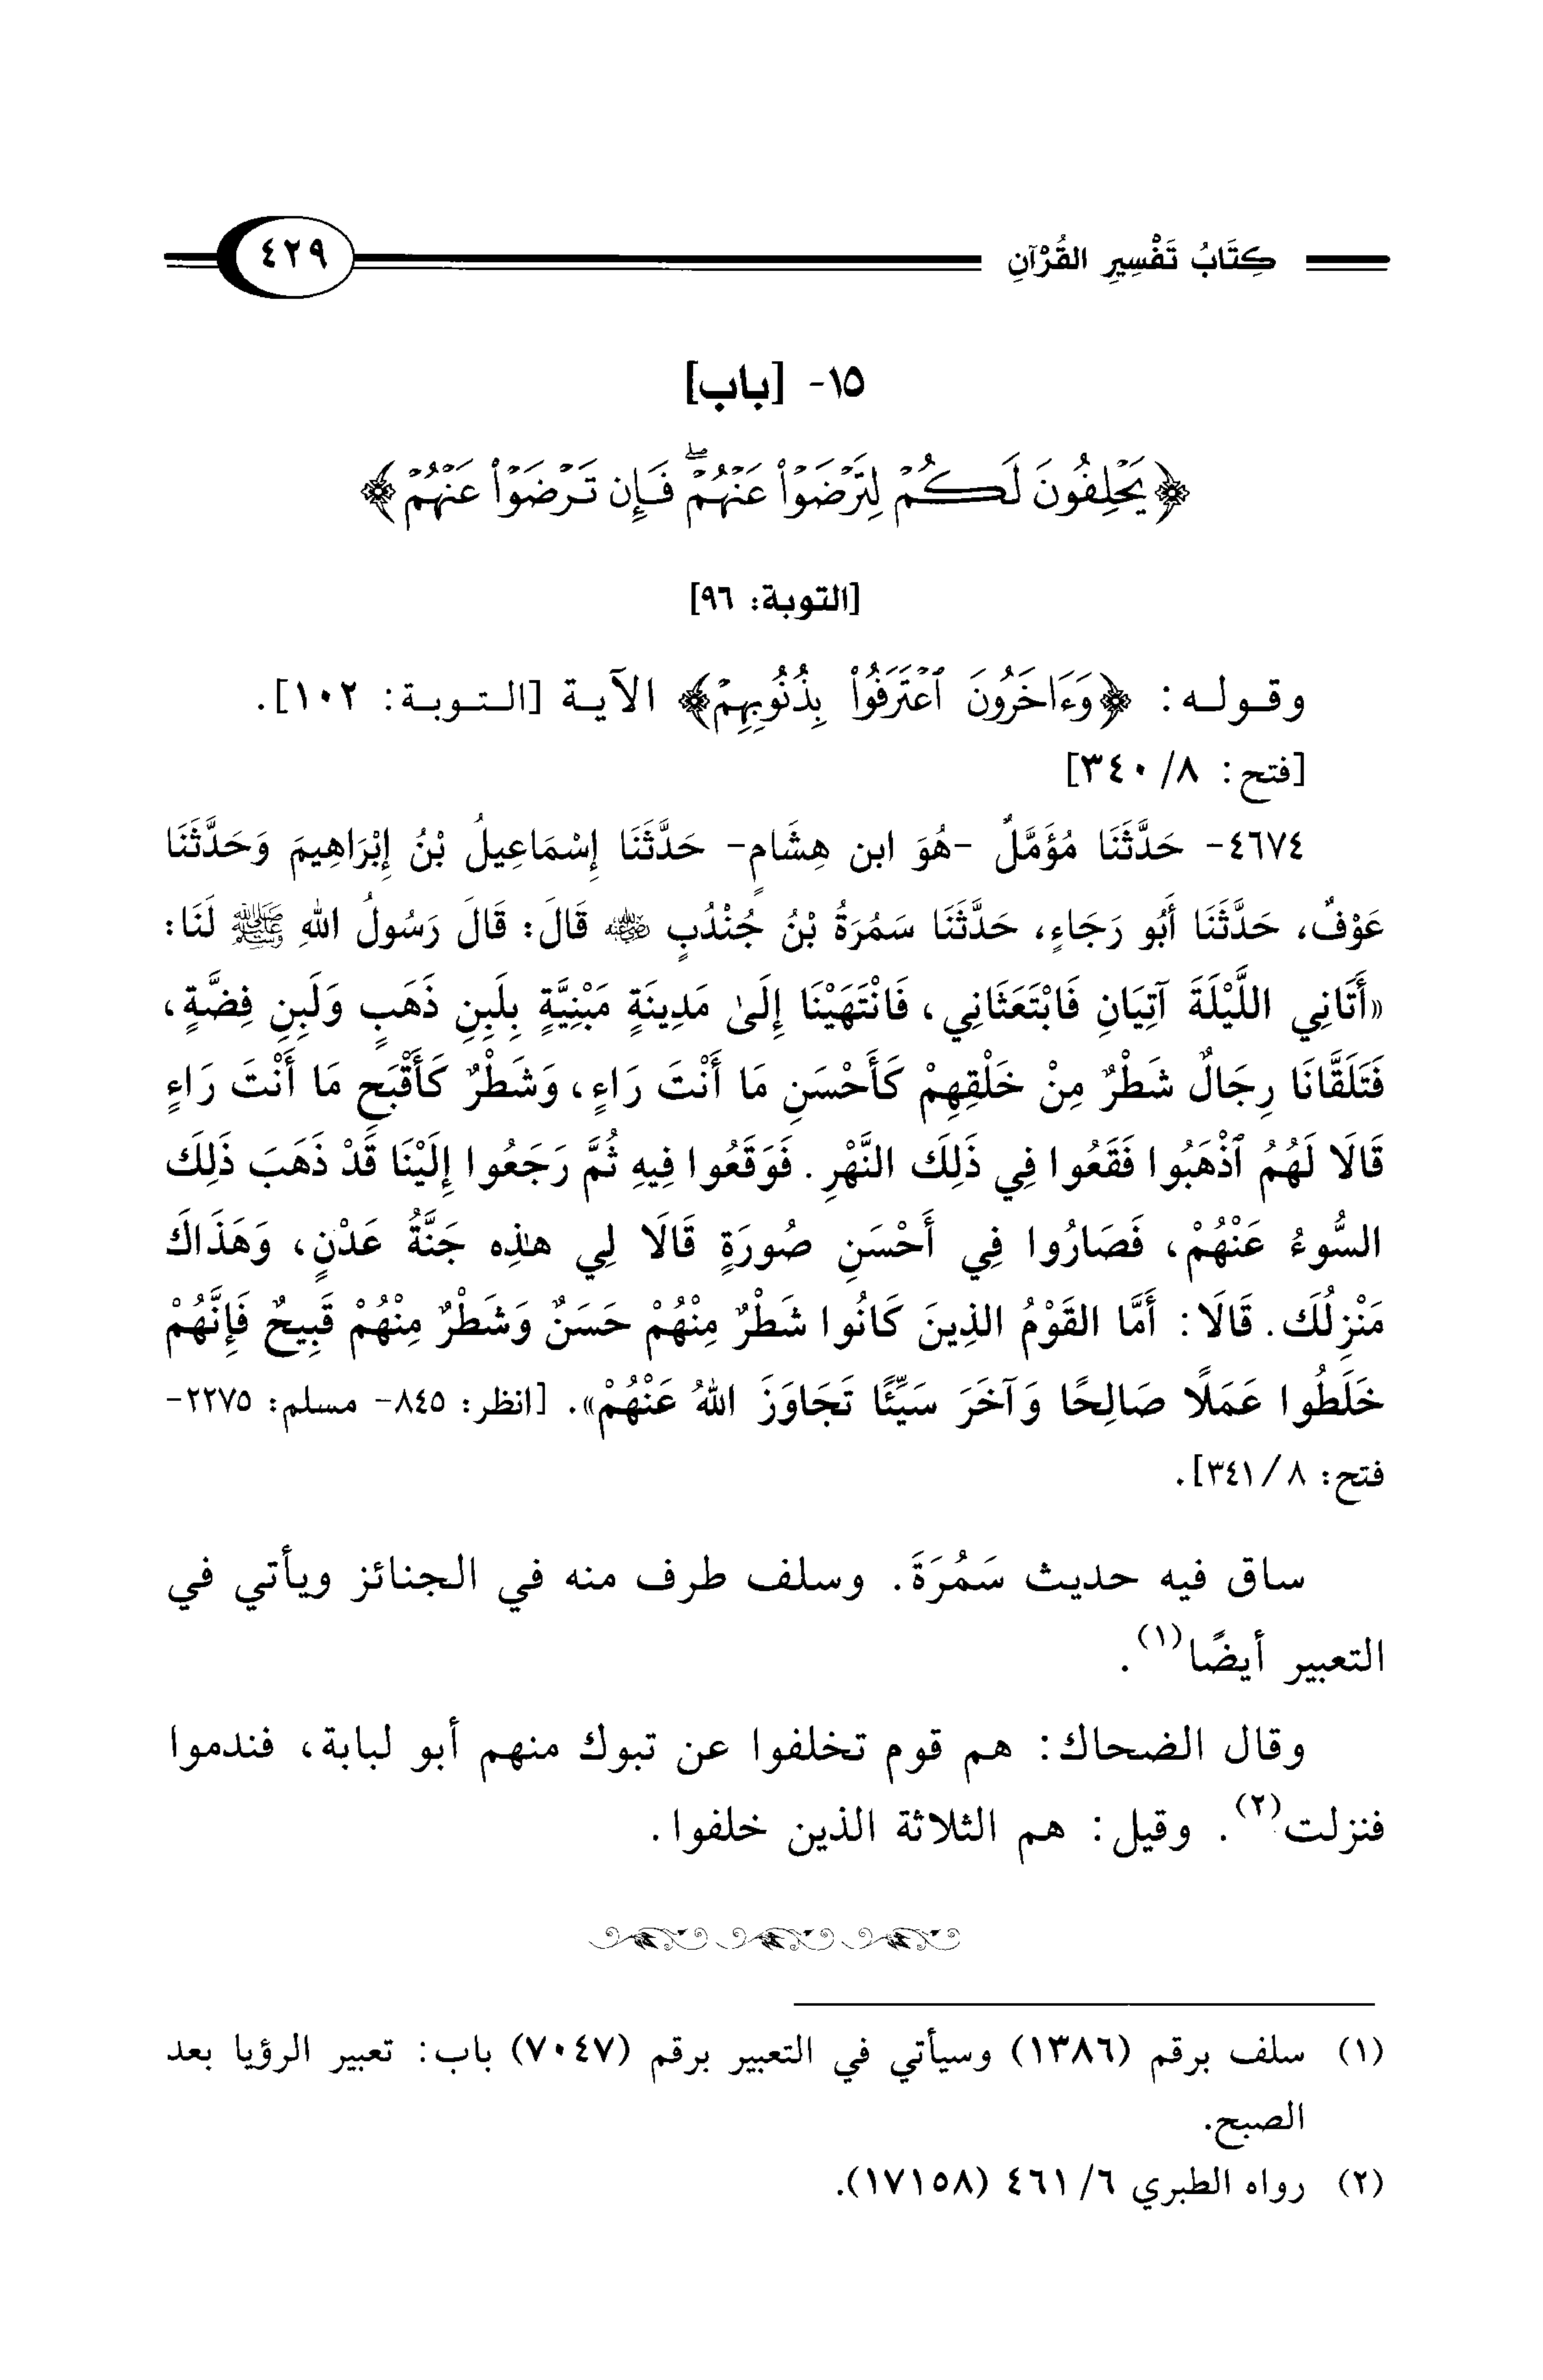 كِتَابُ تَفْسِيرِ القُرْآنِ
٤٢٩
١٥- [باب]
﴿يَحْلِفُونَ لَكُمْ لِتَرْضَوْا۟ عَنْهُمْ ۖ فَإِن تَرْضَوْا۟ عَنْهُمْ﴾
[التوبة: ٩٦]
وقوله: ﴿وَءَاخَرُونَ ٱعْتَرَفُوا۟ بِذُنُوبِهِمْ﴾ الآية [التوبة: ١٠٢].
[فتح: ٨/ ٣٤٠]
٤٦٧٤- حَدَّثَنَا مُؤَمَّلٌ -هُوَ ابن هِشَامٍ- حَدَّثَنَا إِسْمَاعِيلُ بْنُ إِبْرَاهِيمَ وَحَدَّثَنَا
عَوْفٌ، حَدَّثَنَا أَبُو رَجَاءٍ، حَدَّثَنَا سَمُرَةُ بْنُ جُنْدُبٍ رضي الله عنه قَالَ: قَالَ رَسُولُ اللهِ ﷺ لَنَا:
«أَتَانِي اللَّيْلَةَ آتِيَانِ فَابْتَعَثَانِي، فَانْتَهَيْنَا إِلَىٰ مَدِينَةٍ مَبْنِيَّةٍ بِلَبِنِ ذَهَبٍ وَلَبِنِ فِضَّةٍ،
فَتَلَقَّانَا رِجَالٌ شَطْرٌ مِنْ خَلْقِهِمْ كَأَحْسَنِ مَا أَنْتَ رَاءٍ، وَشَطْرٌ كَأَقْبَحِ مَا أَنْتَ رَاءٍ
قَالَا لَهُمُ ٱذْهَبُوا فَقَعُوا فِي ذَلِكَ النَّهْرِ. فَوَقَعُوا فِيهِ ثُمَّ رَجَعُوا إِلَيْنَا قَدْ ذَهَبَ ذَلِكَ
السُّوءُ عَنْهُمْ، فَصَارُوا فِي أَحْسَنِ صُورَةٍ قَالَا لِي هٰذِه جَنَّةُ عَدْنٍ، وَهَذَاكَ
مَنْزِلُكَ. قَالَا: أَمَّا القَوْمُ الذِينَ كَانُوا شَطْرٌ مِنْهُمْ حَسَنٌ وَشَطْرٌ مِنْهُمْ قَبِيحٌ فَإِنَّهُمْ
خَلَطُوا عَمَلًا صَالِحًا وَآخَرَ سَيِّئًا تَجَاوَزَ اللهُ عَنْهُمْ». [انظر: ٨٤٥- مسلم: ٢٢٧٥-
فتح: ٨/ ٣٤١].
ساق فيه حديث سَمُرَةَ. وسلف طرف منه في الجنائز ويأتي في
التعبير أيضًا(١).
وقال الضحاك: هم قوم تخلفوا عن تبوك منهم أبو لبابة، فندموا
فنزلت(٢). وقيل: هم الثلاثة الذين خلفوا.
(١) سلف برقم (١٣٨٦) وسيأتي في التعبير برقم (٧٠٤٧) باب: تعبير الرؤيا بعد
الصبح.
(٢) رواه الطبري ٦/ ٤٦١ (١٧١٥٨).